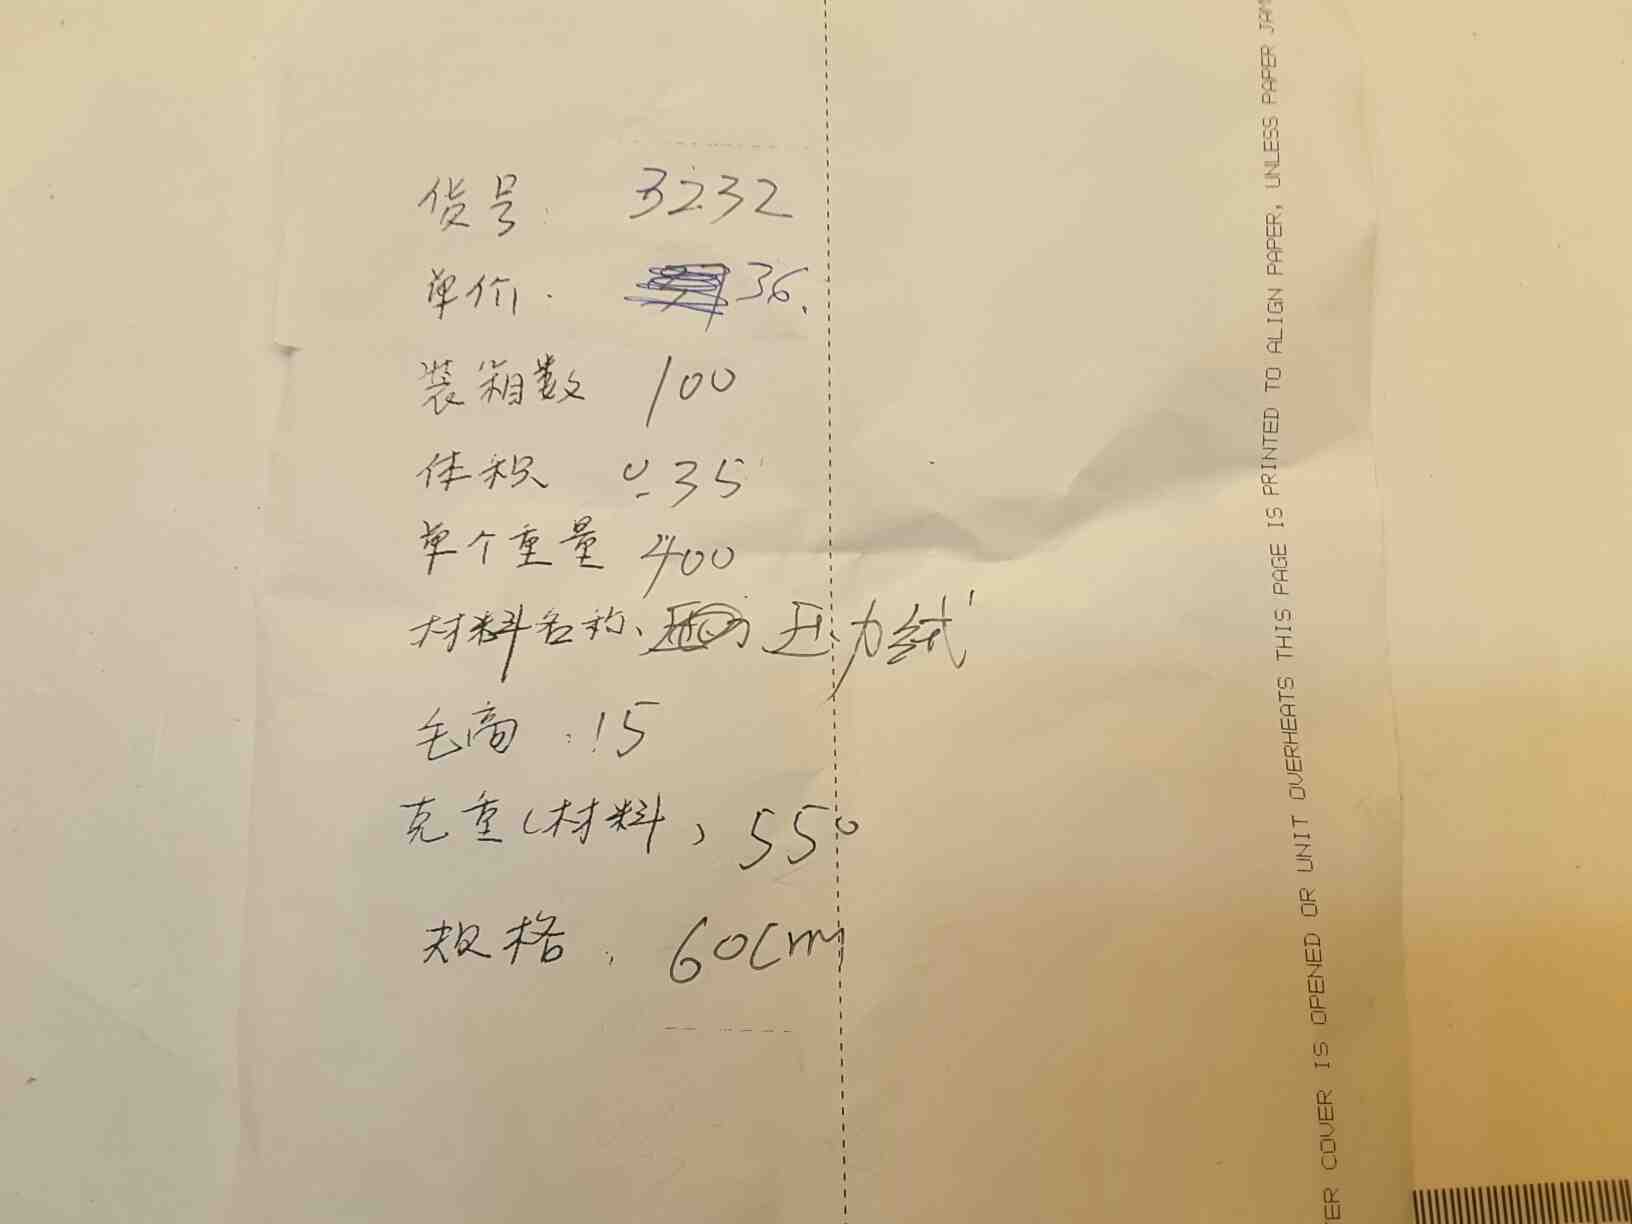 货号: 3232
单价. 36.
装箱数 100
体积 0.35
单个重量 400
材料名称、压力绒
毛高:15
克重(材料) 550
规格: 60cm
ER COVER IS OPENED OR UNIT OVERHEATS THIS PAGE IS PRINTED TO ALIGN PAPER, UNLESS PAPER JAM